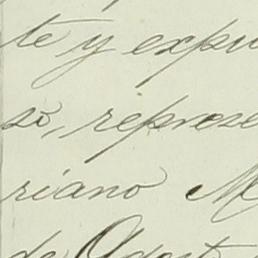 te y expu
so, represe
riano M
de Agost